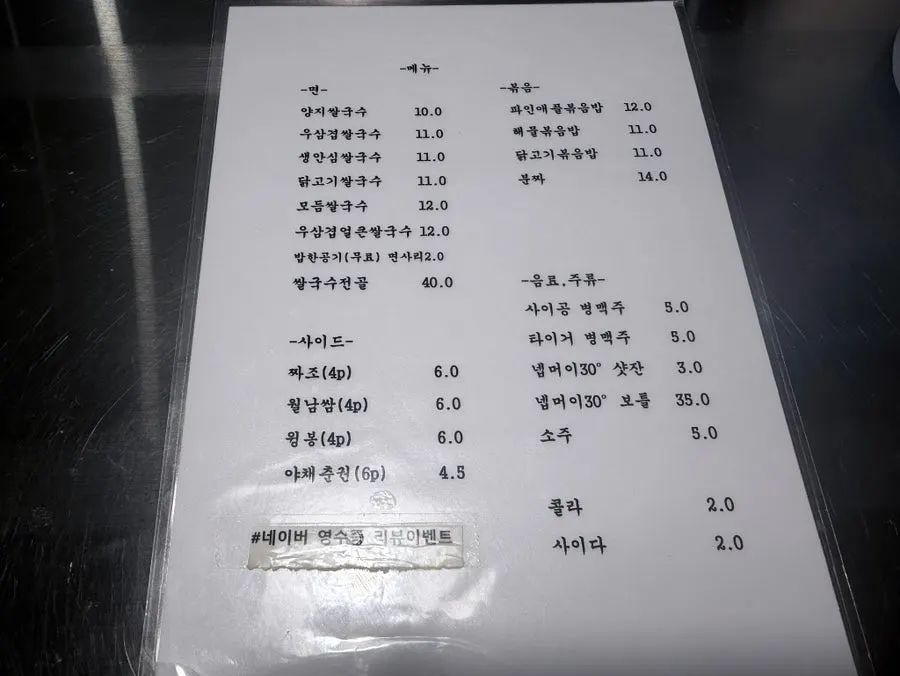 -메뉴-
-면-
양지쌀국수 10.0
우삼겹쌀국수 11.0
생안심쌀국수 11.0
닭고기쌀국수 11.0
모듬쌀국수 12.0
우삼겹얼큰쌀국수 12.0
밥한공기(무료) 면사리2.0
쌀국수전골 40.0
-사이드-
짜조(4p) 6.0
월남쌈(4p) 6.0
윙봉(4p) 6.0
야채춘권(6p) 4.5
#네이버 영수증 리뷰이벤트
-볶음-
파인애플볶음밥 12.0
해물볶음밥 11.0
닭고기볶음밥 11.0
분짜 14.0
-음료.주류-
사이공 병맥주 5.0
타이거 병맥주 5.0
넵머이30° 샷잔 3.0
넵머이30° 보틀 35.0
소주 5.0
콜라 2.0
사이다 2.0